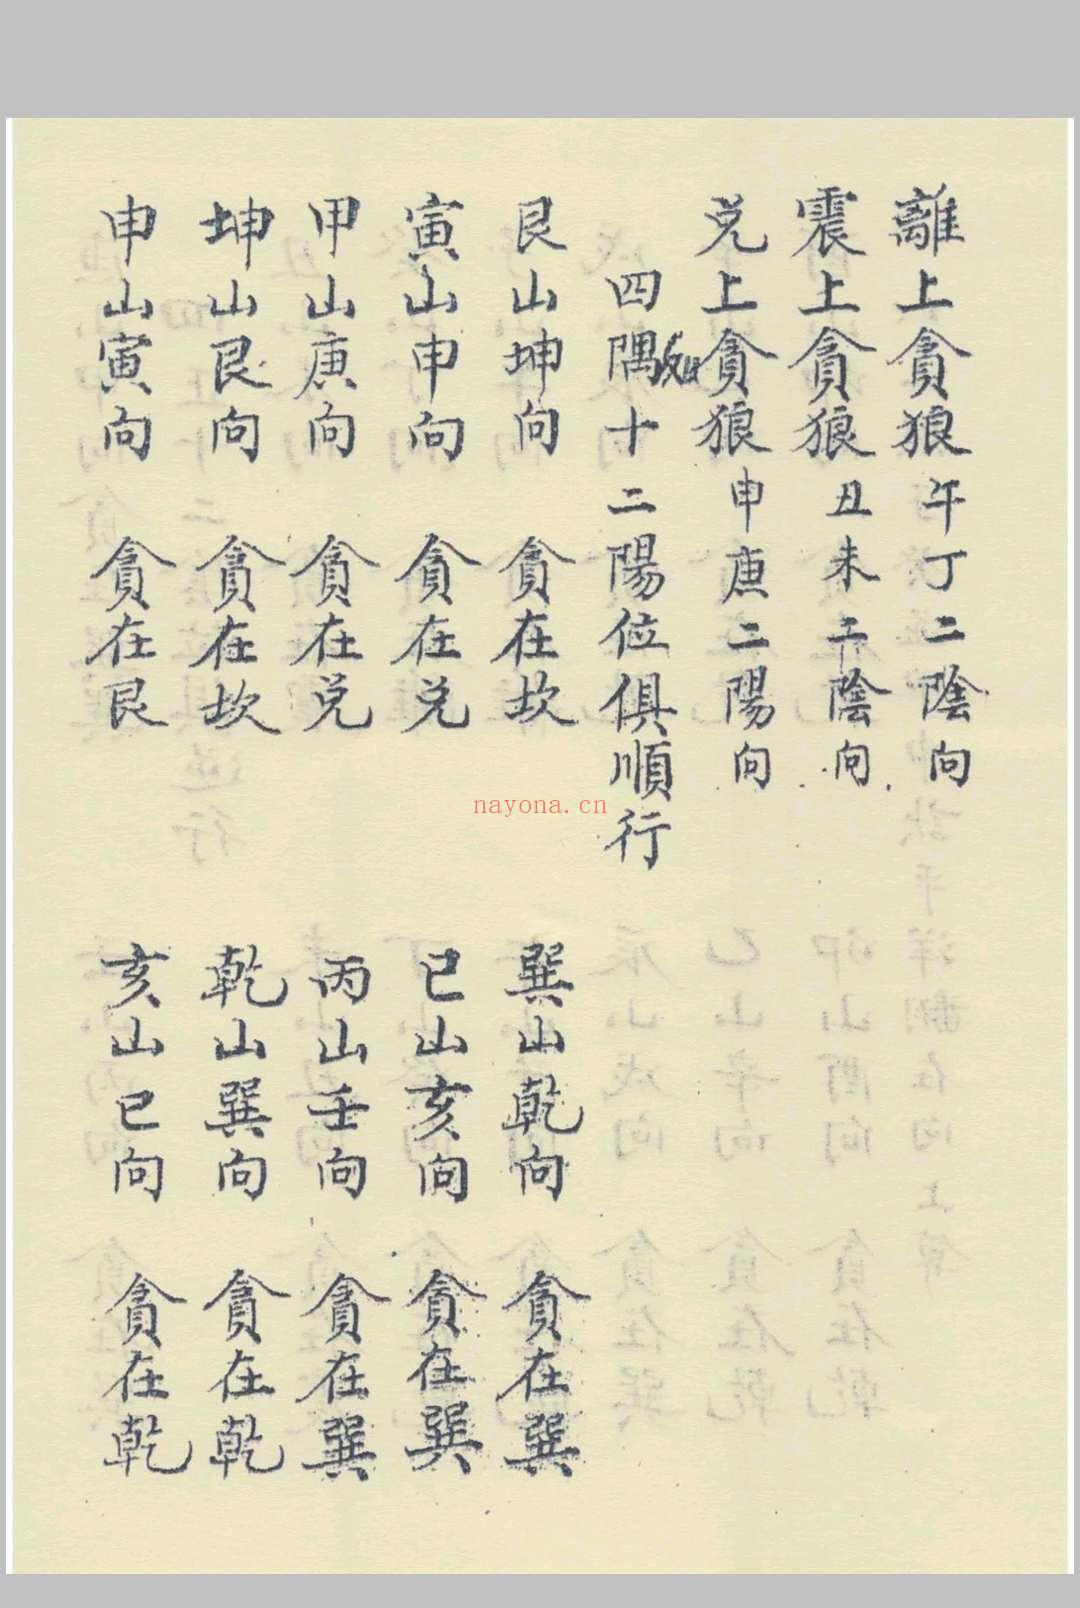 離上貪狼午丁二陰向
震上貪狼丑未二陰向
兌上貪狼申庚二陽向
四隅十二陽位俱順行
艮山坤向 貪在坎 巽山乾向 貪在巽
寅山申向 貪在兌 巳山亥向 貪在巽
甲山庚向 貪在兌 丙山壬向 貪在巽
坤山艮向 貪在坎 乾山巽向 貪在乾
申山寅向 貪在艮 亥山巳向 貪在乾
nayona.cn